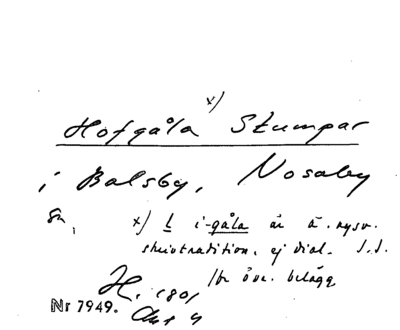 x)
Hofgåla Stumpar
i Balsby, Nosaby
Sn, x) l i -gåla är ä. nysv.
skrivtradition, ej dial. S.J.
H. 1801 jfr övr. belägg
Nr 7949. Akt 4